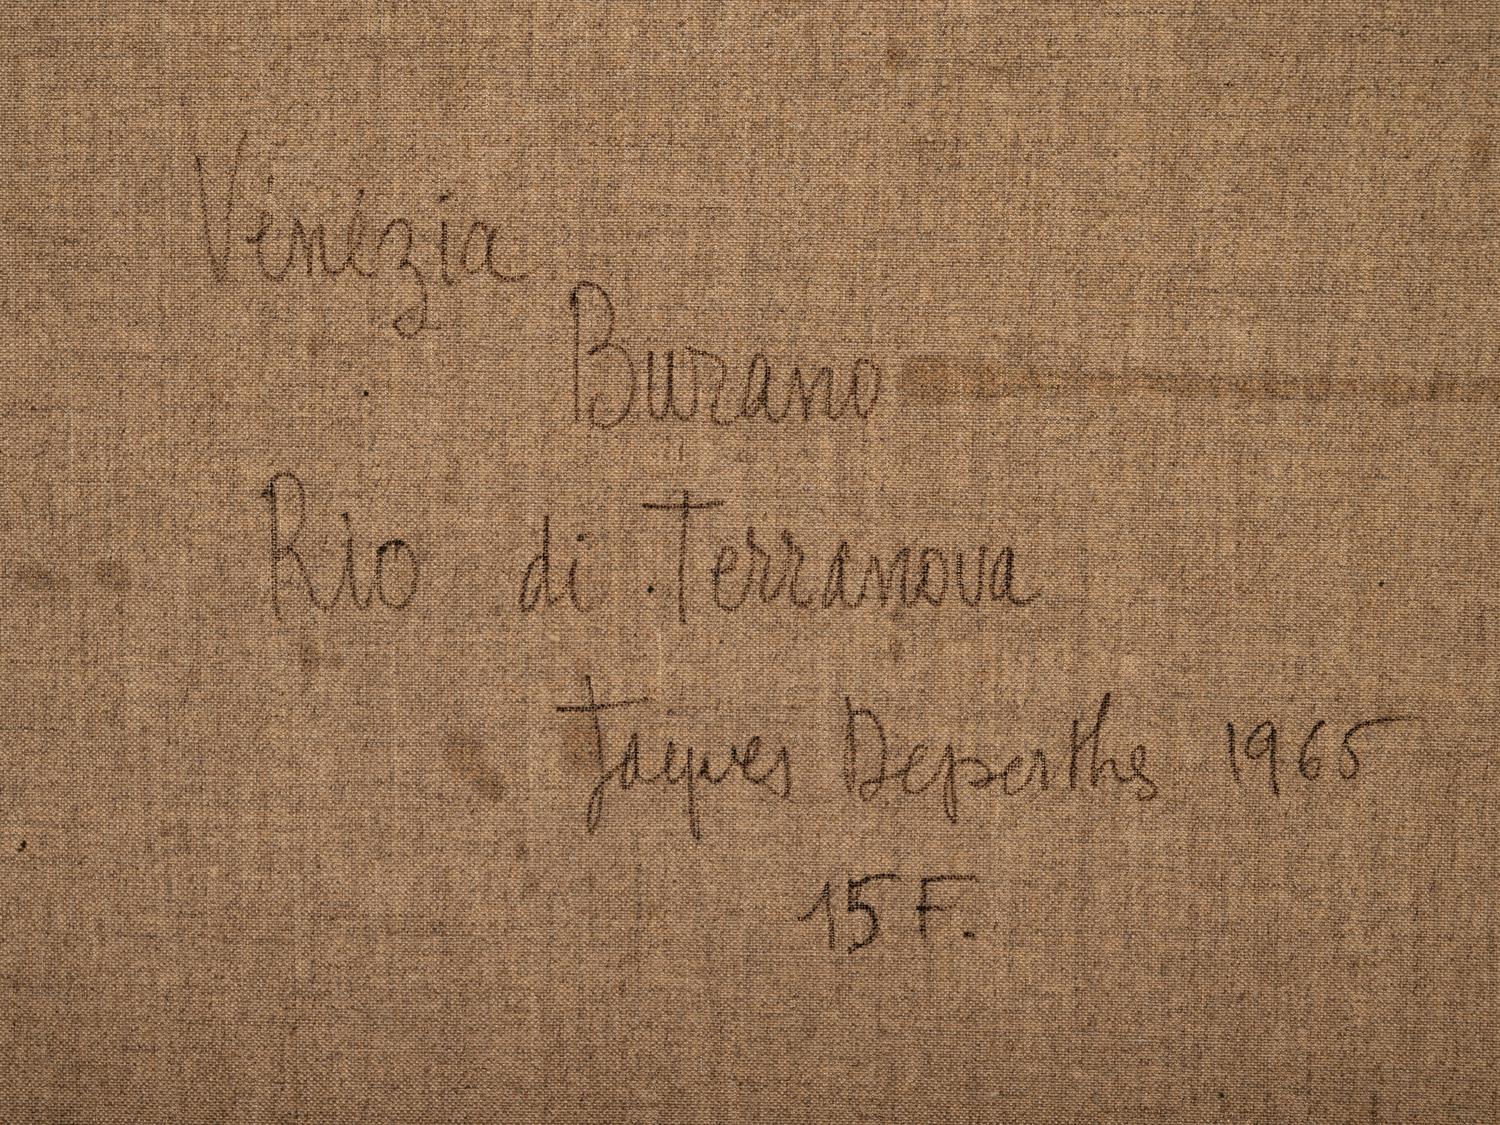 Venézia
Burano
Rio di Terranova
Jaques Deperthes 1965
15 F.